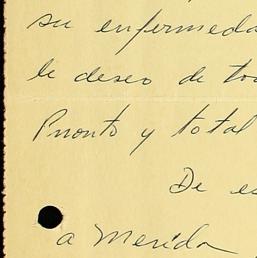 su enfermeda
le deseo de to
Pronto y total
De es
a Merida